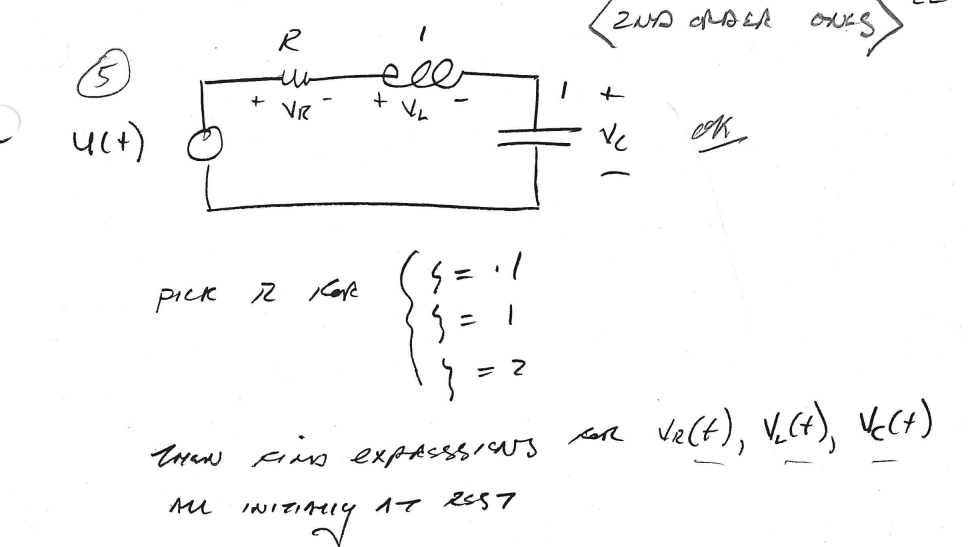 ⟨2ND ORDER ONES⟩
⑤
R
1
+ VR - + VL -
1 +
u(t)
VC
OK
-
PICK R FOR { ζ = .1
ζ = 1
ζ = 2
THEN FIND EXPRESSIONS FOR VR(t), VL(t), VC(t)
ALL INITIALLY AT REST